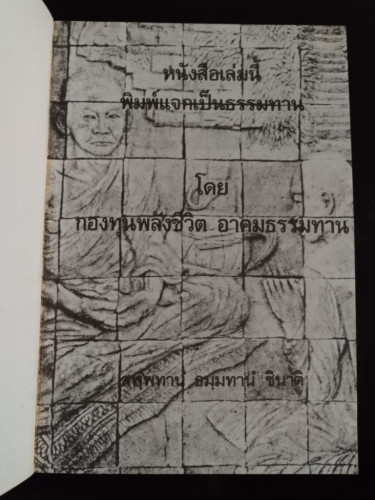 หนังสือเล่มนี้
พิมพ์แจกเป็นธรรมทาน
โดย
กองทุนพลังชีวิต อาคมธรรมทาน
สพฺพทานํ ธมฺมทานํ ชินาติ